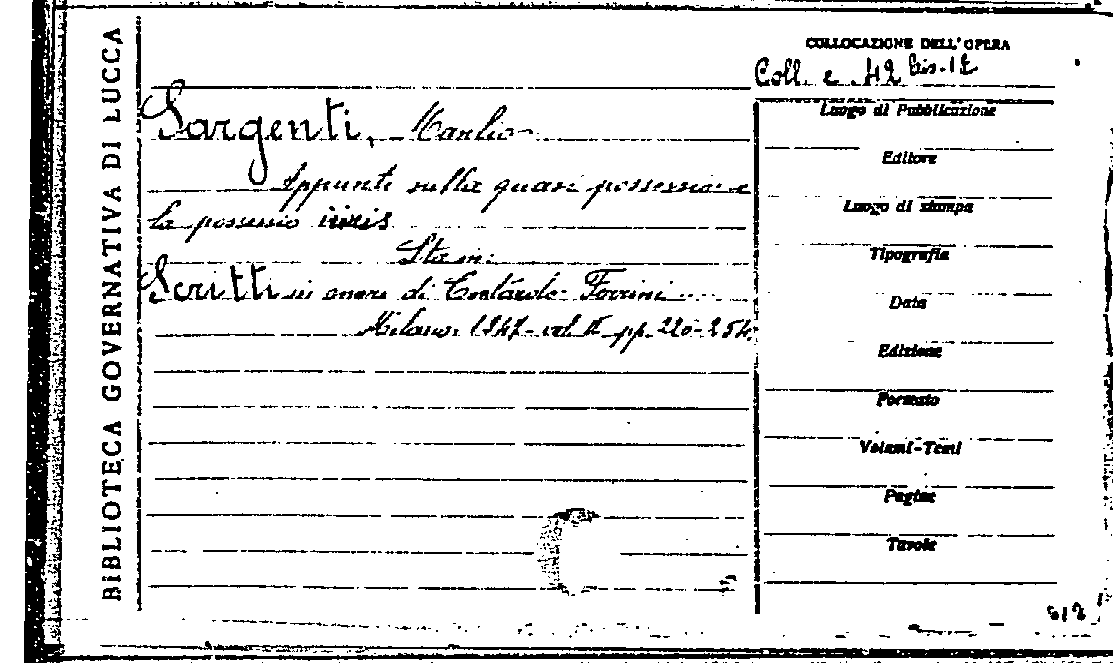 BIBLIOTECA GOVERNATIVA DI LUCCA
COLLOCAZIONE DELL'OPERA
Coll. e 42 bis.12
Sargenti, Manlio
Appunti sulla quasi possessio e
la possessio iuris
Sta in:
Scritti in onore di Contardo Ferrini
Milano. 1947 - vol. II pp. 220-254.
Luogo di Pubblicazione
Editore
Luogo di stampa
Tipografia
Data
Edizione
Formato
Volumi-Tomi
Pagine
Tavole